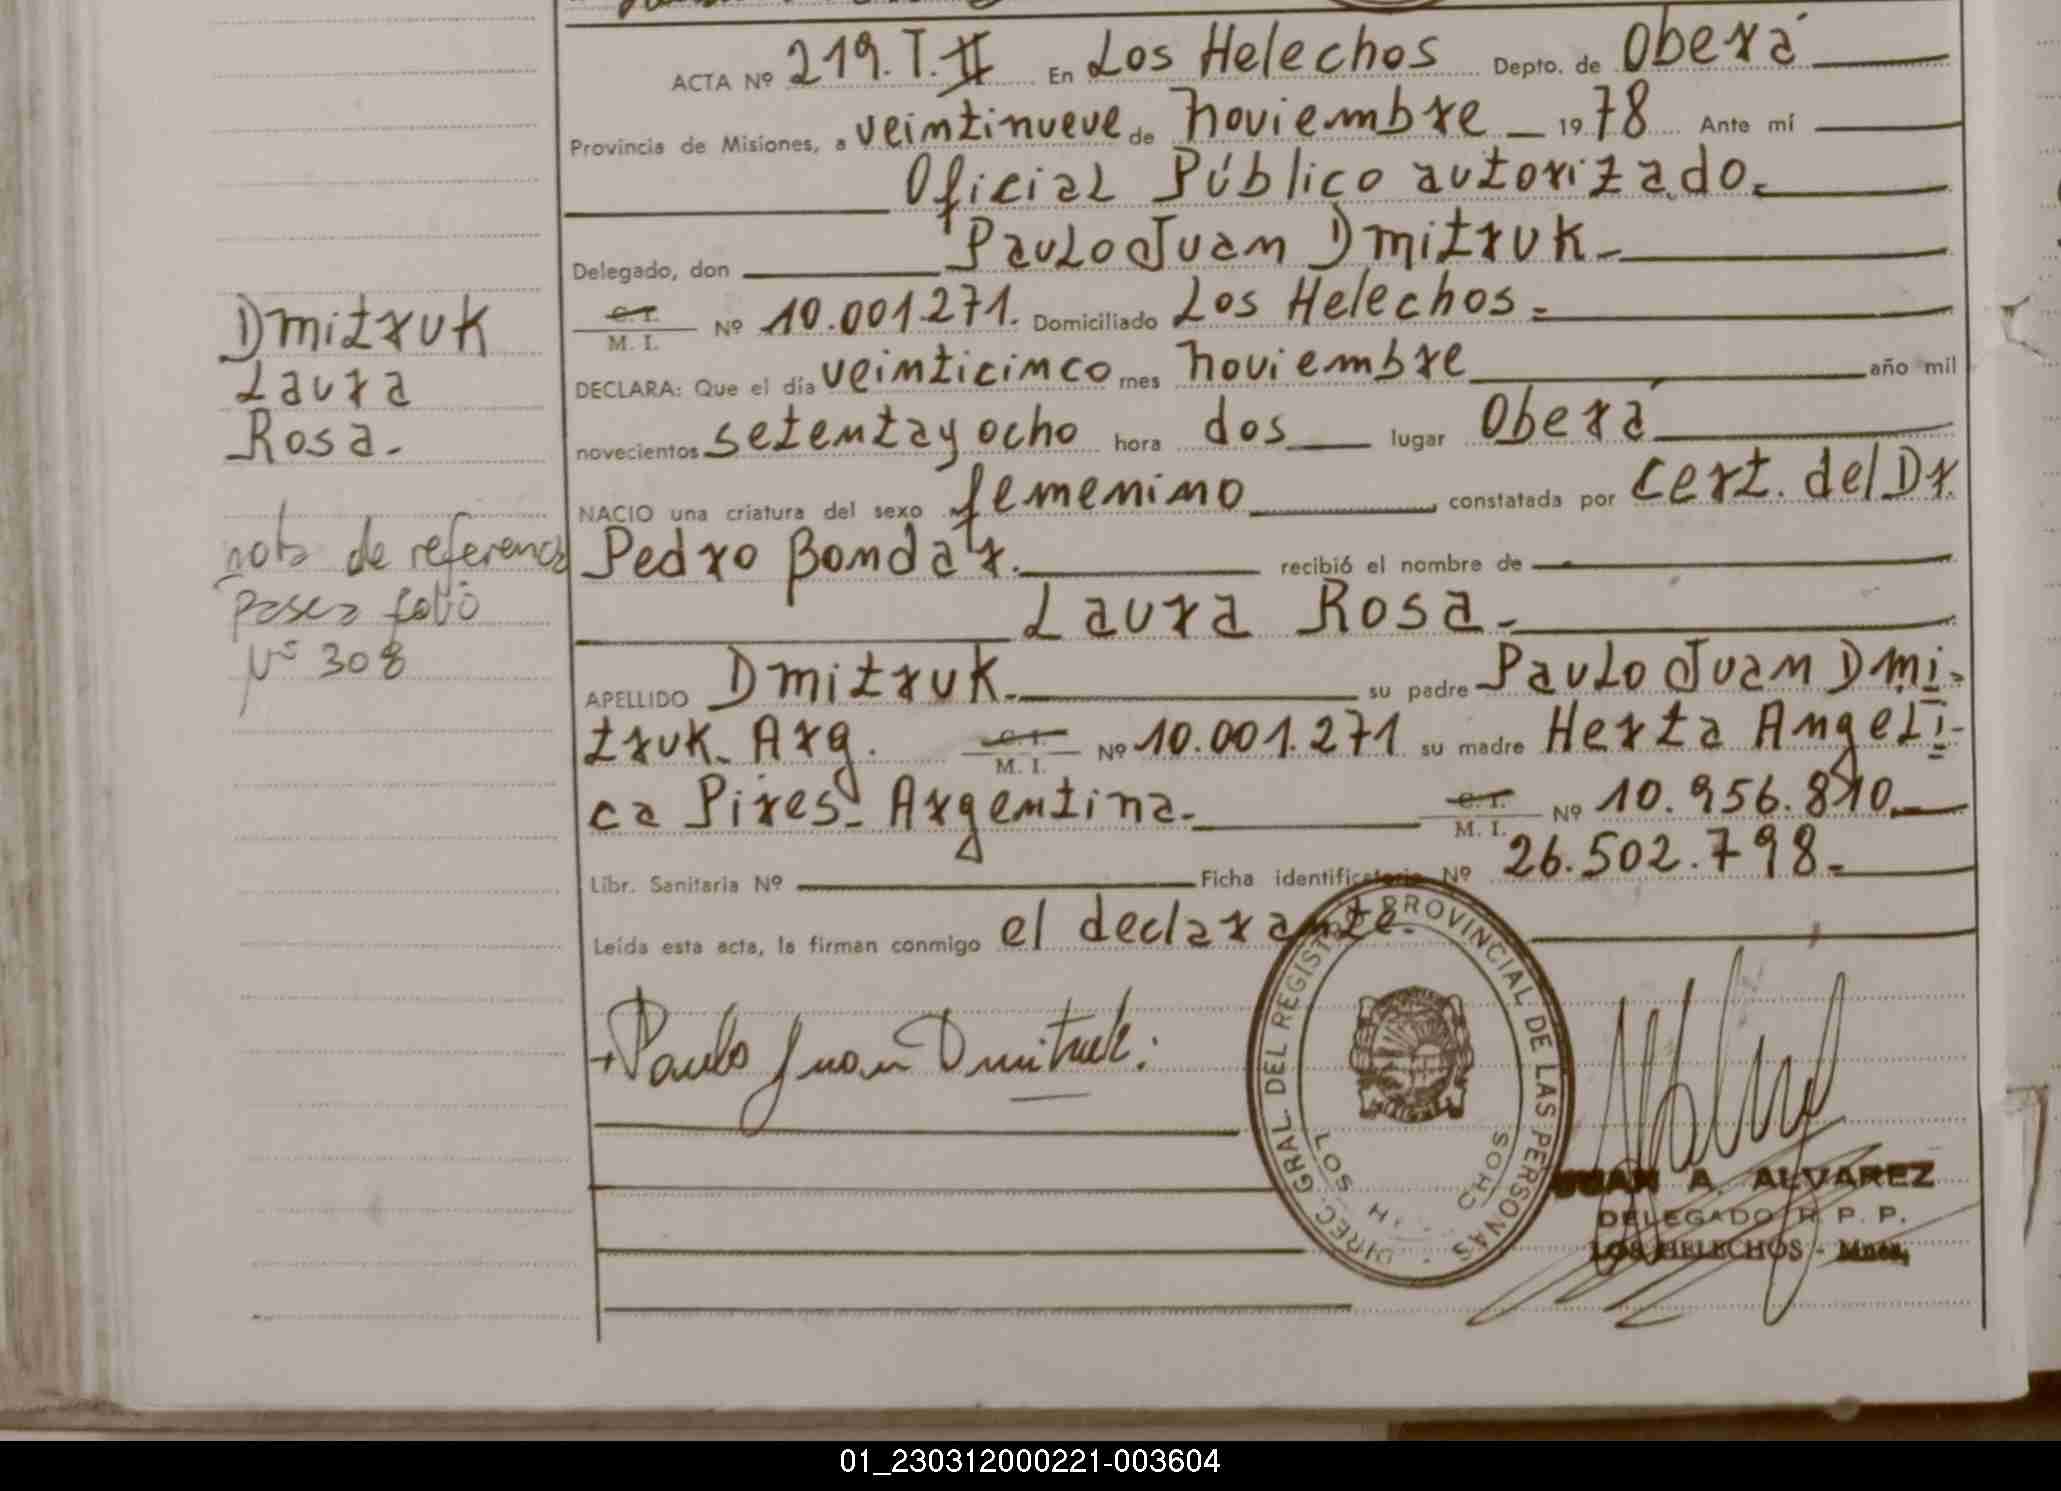 ACTA Nº 219. T. II En Los Helechos Depto. de Oberá
Provincia de Misiones, a veintinueve de noviembre 1978 Ante mí
Oficial Público autorizado.
Delegado, don Paulo Juan Dmitruk.
C. I. M. I. Nº 10.001.271. Domiciliado Los Helechos.
DECLARA: Que el día veinticinco mes noviembre año mil
novecientos setenta y ocho hora dos lugar Oberá
NACIO una criatura del sexo femenino constatada por cert. del Dr.
Pedro Bondar. recibió el nombre de
Laura Rosa.
APELLIDO Dmitruk. su padre Paulo Juan Dmi-
truk. Arg. C. I. M. I. Nº 10.001.271 su madre Herta Angeli-
ca Pires. Argentina. C. I. M. I. Nº 10.956.810
Libr. Sanitaria Nº Ficha identificatoria Nº 26.502.798.
Leída esta acta, la firman conmigo el declarante.
Dmitruk
Laura
Rosa.
nota de referencia
pasa a folio
Nº 308
Paulo Juan Dmitruk.
DIREC. GRAL DEL REGISTRO PROVINCIAL DE LAS PERSONAS
LOS HELECHOS
JUAN A. ALVAREZ
DELEGADO R. P. P.
LOS HELECHOS - Mnes.
01_230312000221-003604